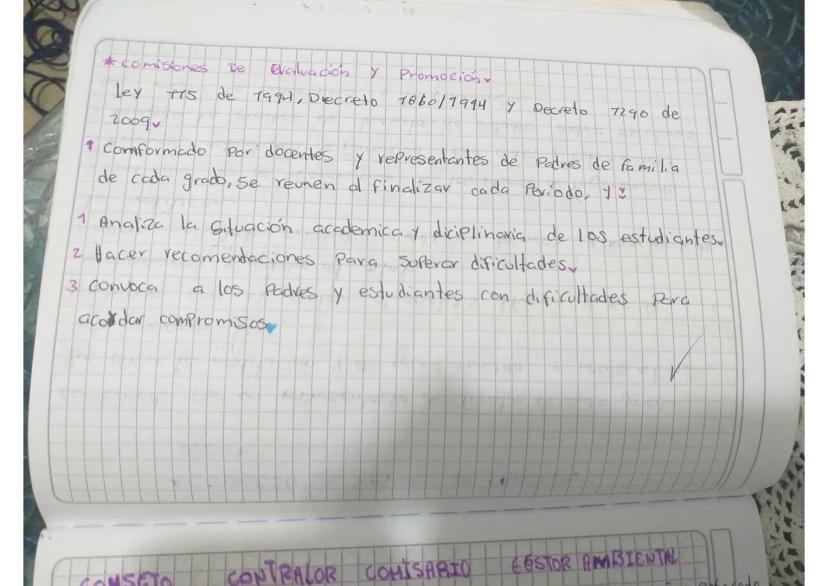 * Comisiones De Evaluación y Promoción.
Ley 115 de 1994, Decreto 1860/1994 y Decreto 1290 de
2009
Comformado por docentes y representantes de Padres de familia
de cada grado, se reunen al finalizar cada Periodo, y:
1 Analiza la Situación academica y diciplinaria de los estudiantes.
2 Hacer recomendaciones Para Superar dificultades.
3 Convoca a los Padres y estudiantes con dificultades Para
acordar compromisos
CONSEJO CONTRALOR COMISARIO GESTOR AMBIENTAL